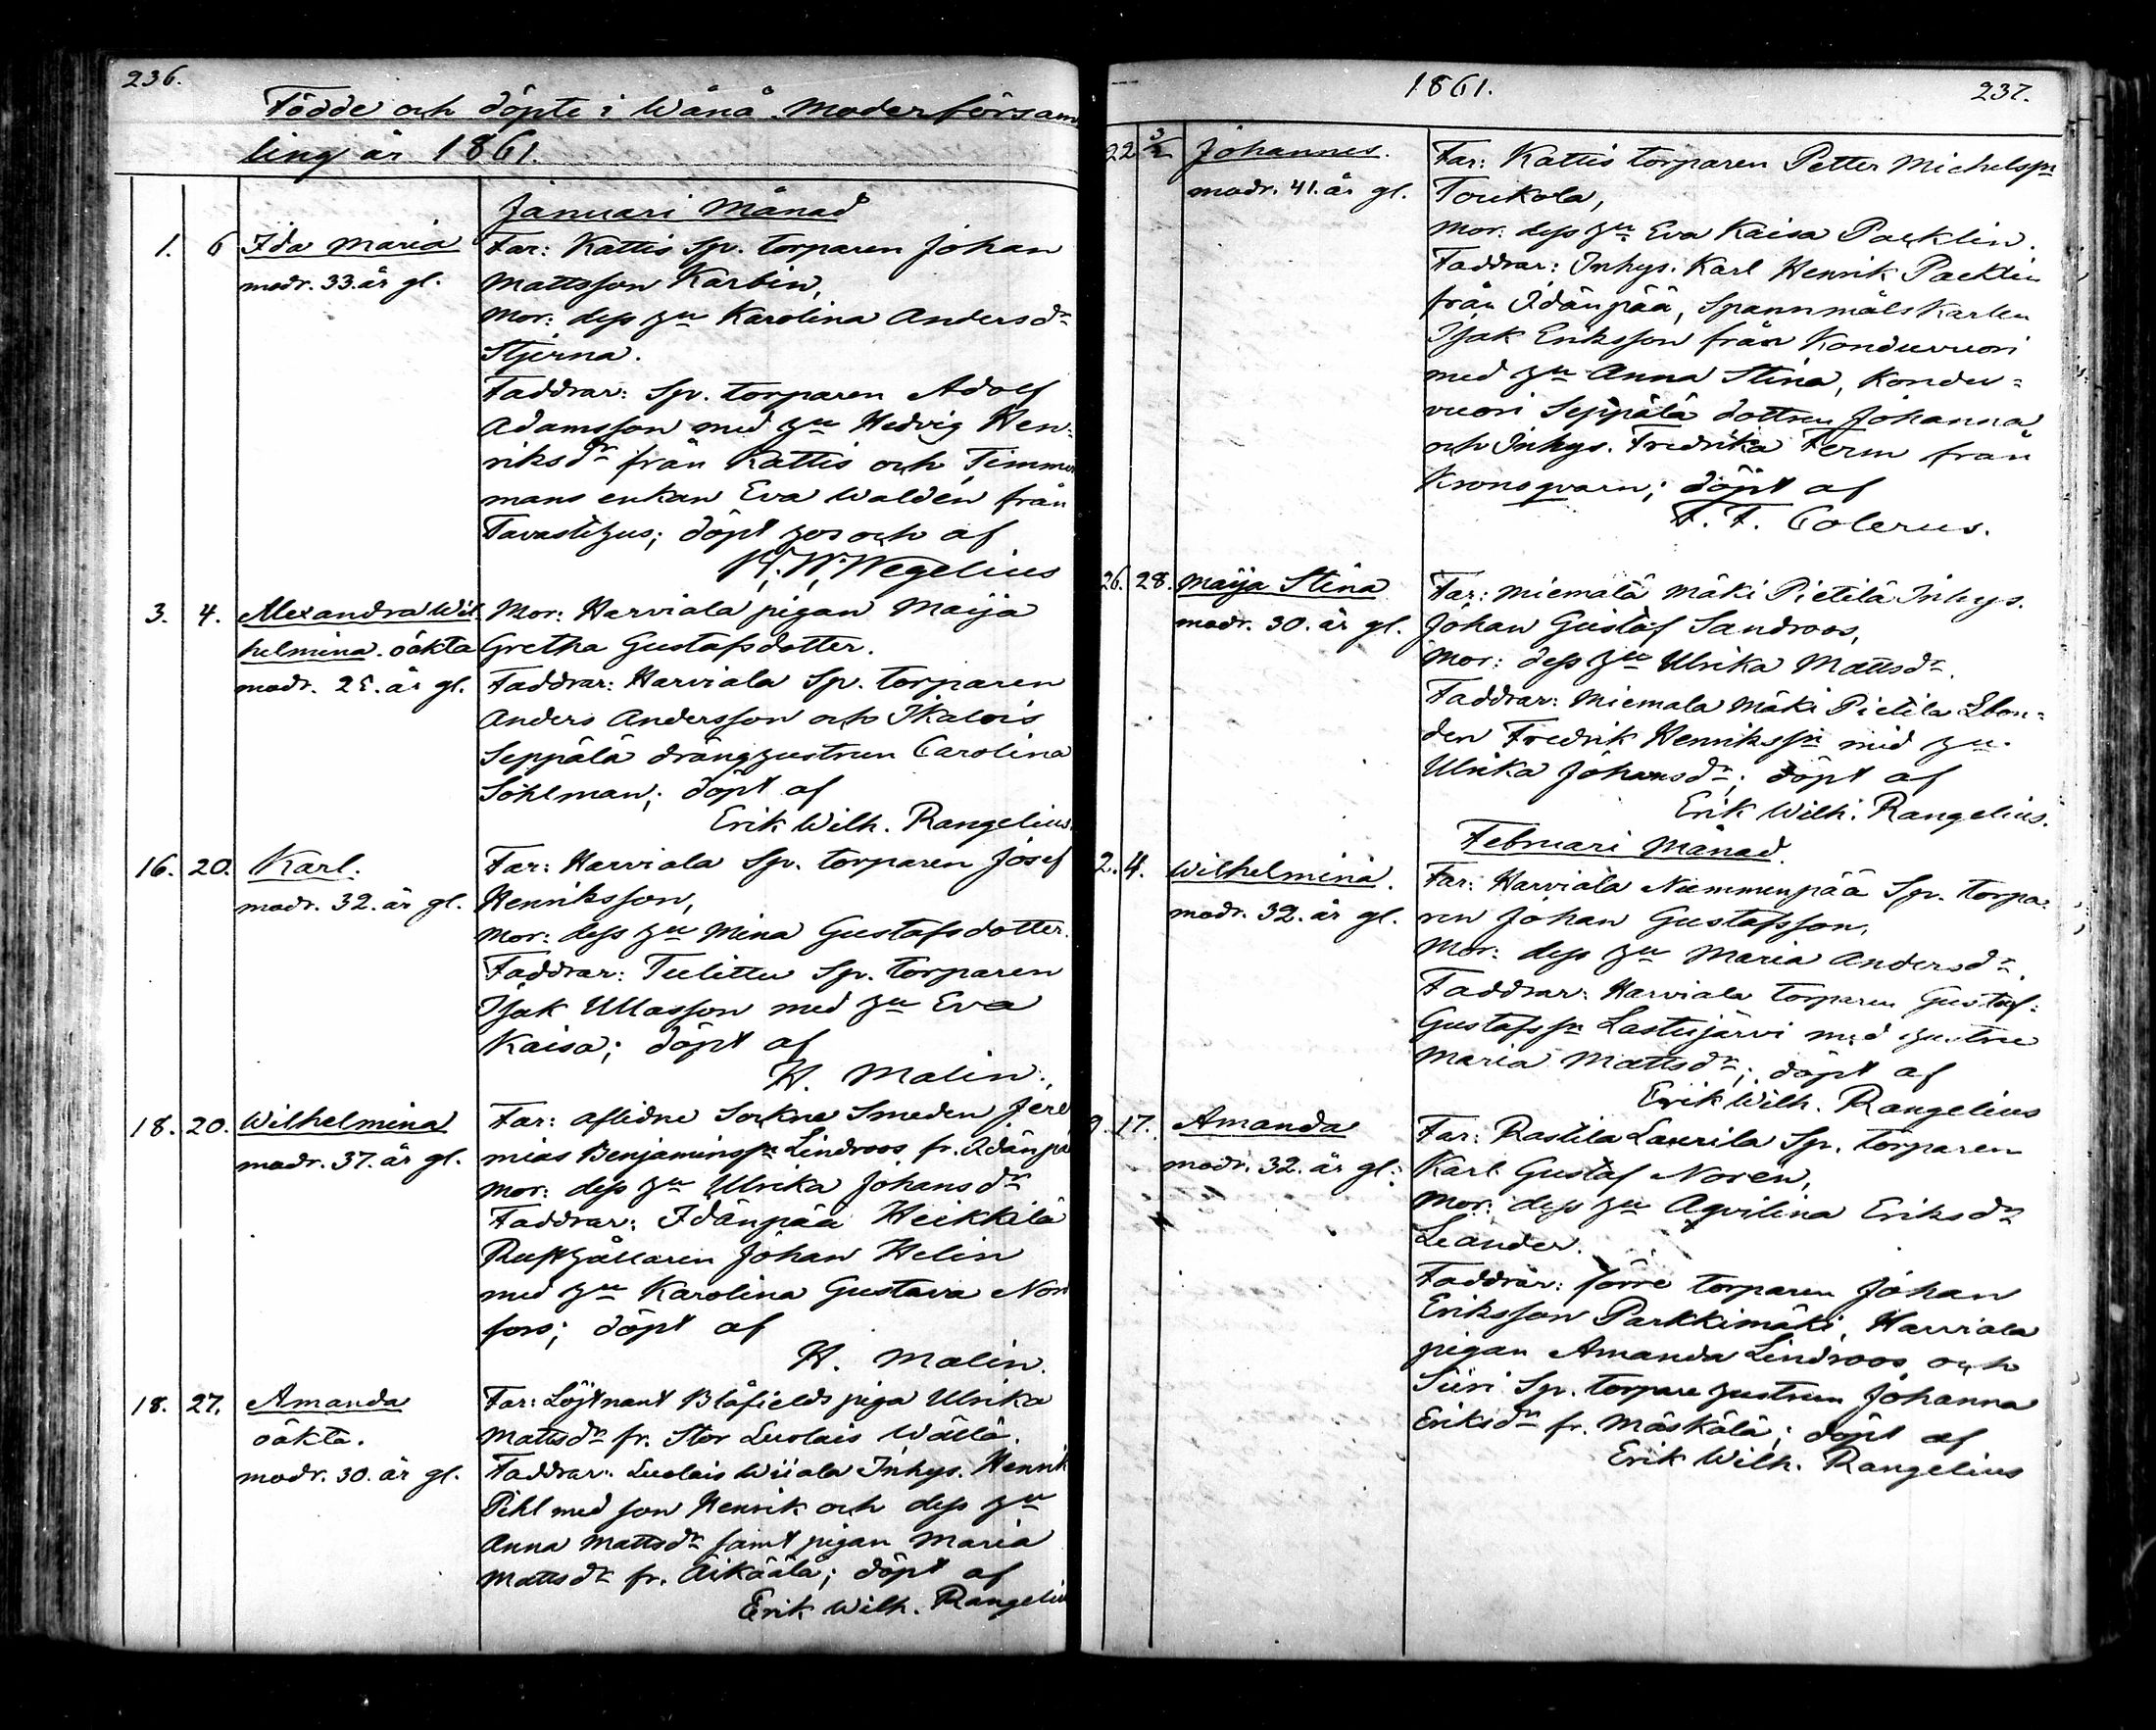 236.
Födde och döpte i Wånå Moderförsam
ling år 1861.
Januari Månad
1. 6 Ida Maria Far: Kattis Sp. torparen Johan
modr. 33. år gl. Mattsson Karbin,
Mor: dess hu Karolina Andersdr
Stjerna.
Faddrar: Sp. torparen Adolf
Adamsson med hu Hedvig Hen=
riksdr från Kattis och Timmer
mans enkan Eva Walden från
Tavastehus; döpt hos och af
Wegelius
3. 4. Alexandra Wil Mor: Harviala pigan Maija
helmina. oäkta Gretha Gustafsdotter.
modr. år gl. Faddrar: Harviala Sp. torparen
Anders Andersson och Ikalois
Seppälä dränghustrun Carolina
Söhlman; döpt af
Erik Wilh. Rangelius.
16. 20. Karl. Far: Harviala Sp. torparen Josef
modr. 32. år gl. Henriksson,
Mor: dess hu Mina Gustafsdotter.
Faddrar: Tulittu Sp. torparen
Isak Ullasson med hu Eva
Kaisa; döpt af
H. Malin.
18. 20. Wilhelmina Far: aflidne Sockne Smeden Jere
modr. 37. år gl. mias Benjaminssn Lindroos fr. Idänpä
Mor: dess hu Ulrika Johansdr
Faddrar: Idänpää Heikkilä
Rusthållaren Johan Helin
med hu Karolina Gustava Nord
fors; döpt af
H. Malin.
18. 27. Amanda Far: Löjtnant Blåfields piga Ulrika
oäkta. Mattsdr fr. Stor Luolais Wälä.
modr. 30. år gl. Faddrar: Luolais Wiiala Inhys. Henrik
Pihl med son Henrik och dess hu
Anna Mattsdr samt pigan Maria
Mattsdr fr. Äikäälä; döpt af
Erik Wilh. Rangeliu
1861. 237.
22 3/2 Johannes. Far: Kattis torparen Petter Michelssn
modr. 41. år gl. Toukola,
Mor: dess hu Eva Kaisa Packlin.
Faddrar: Inhys. Karl Henrik Packlin
från Idänpää, Spannmåls Karlen
Isak Eriksson från Konduvuori
med hu Anna Stina, Kondu=
vuori Seppälä dottren Johanna
och Inhys. Fredrika Ferm från
Kronoqvarn; döpt af
F. F. Colerus.
26. 28. Maija Stina Far: Miemälä Mäki Pietilä Inhys.
modr. 30. år gl. Johan Gustaf Sandroos,
Mor: dess hu Ulrika Mattsdr.
Faddrar: Miemala Mäki Pietila Lbon=
den Fredrik Henrikssn med hu.
Ulrika Johansdr; döpt af
Erik Wilh. Rangelius.
Februari Månad.
2. 4. Wilhelmina. Far: Harviala Nummenpää Sp. torpa=
modr. 32. år gl. ren Johan Gustafsson,
Mor: dess hu Maria Andersdr.
Faddrar: Harviala torparen Gustaf
Gustafssn Lastujärvi med hustru
Maria Mattsdr; döpt af
Erik Wilh. Rangelius
9. 17. Amanda Far: Rastila Laurila Sp. torparen
modr. 32. år gl: Karl Gustaf Noren,
Mor: dess hu Aqvilina Eriksdr
Leander.
Faddrar: förre torparen Johan
Eriksson Parkkimäki, Harviala
pigan Amanda Lindroos och
Siiri Sp. torpare hustrun Johanna
Eriksdr fr. Mäskälä; döpt af
Erik Wilh. Rangelius